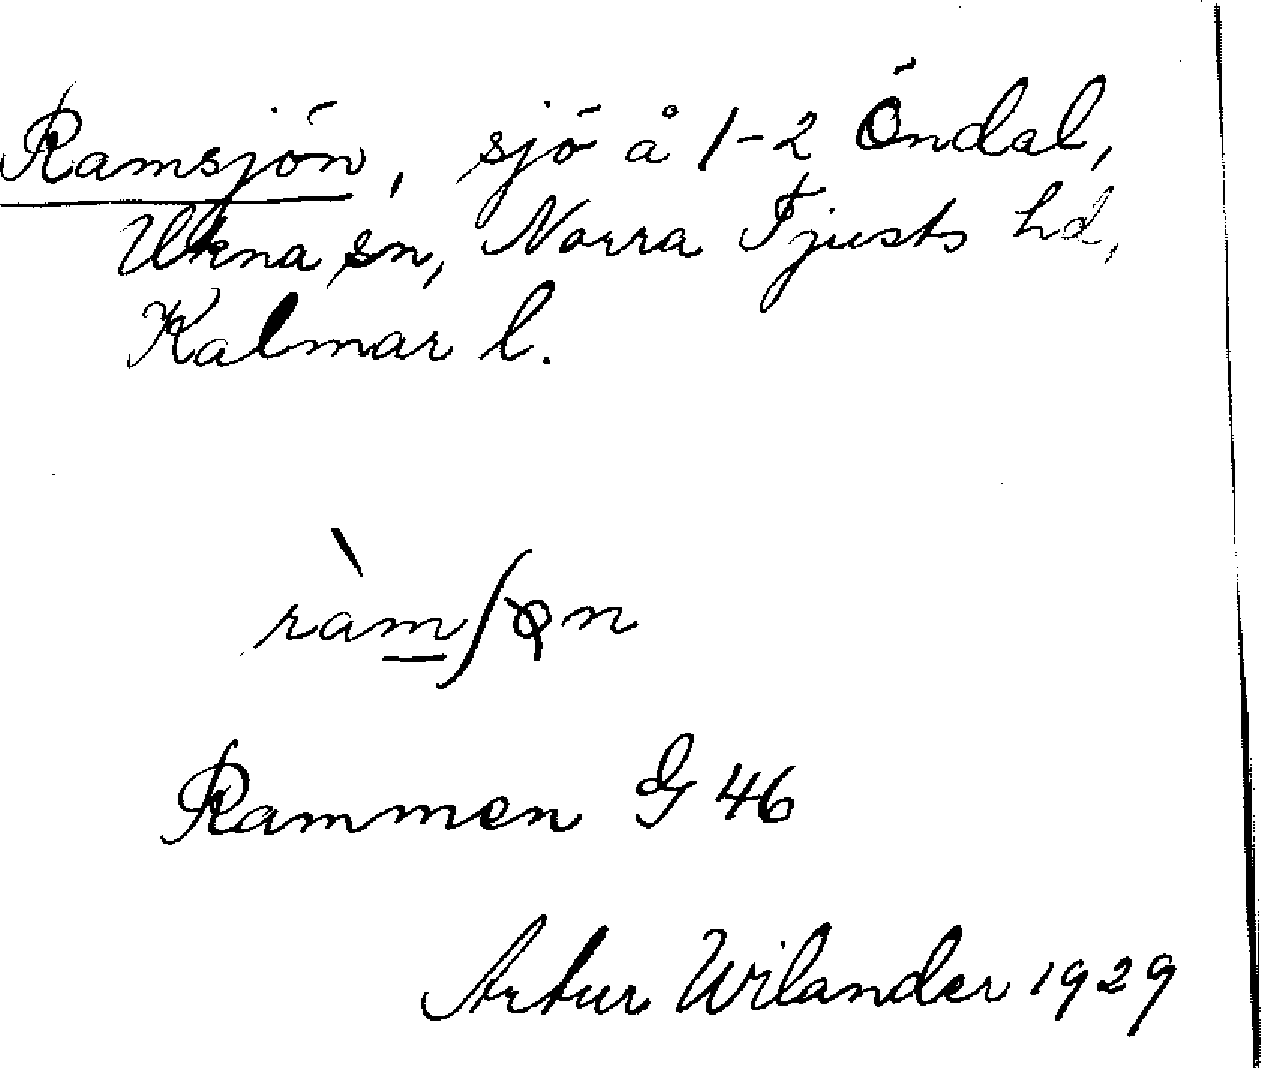 Ramsjön, sjö å 1-2 Öndal,
Ukna sn, Norra Tjusts hd,
Kalmar l.
ràmʃø̨n
Rammen G 46
Artur Wilander 1929